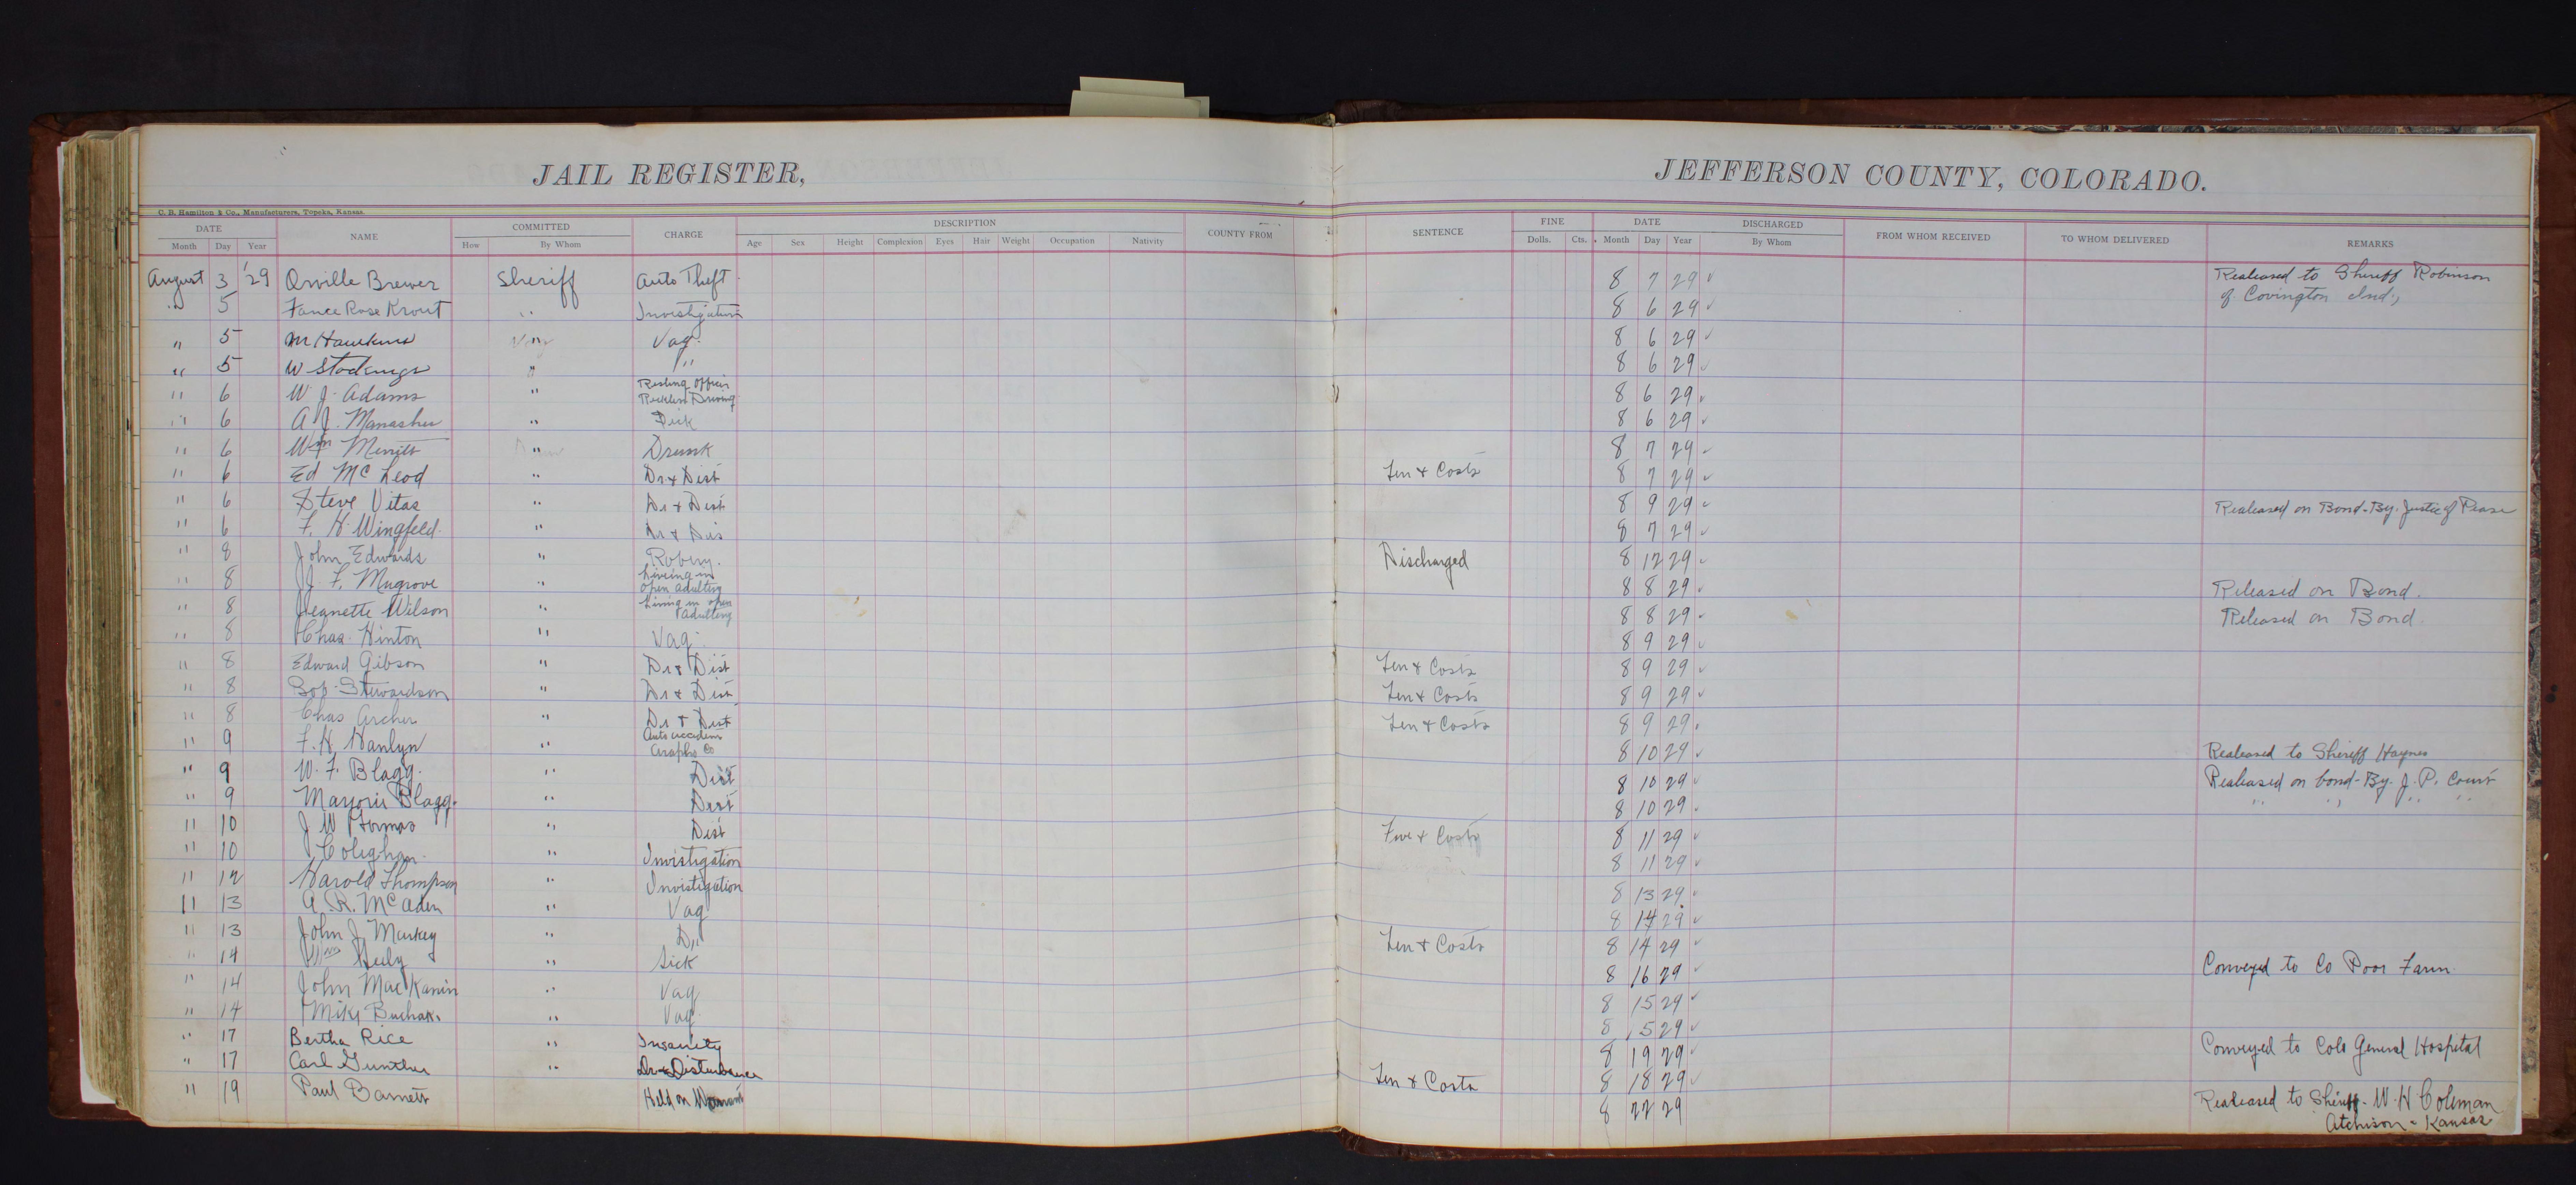 JAIL REGISTER, JEFFERSON COUNTY, COLORADO.
C. B. Hamilton & Co., Manufacturers, Topeka, Kansas.
DATE NAME COMMITTED CHARGE DESCRIPTION COUNTY FROM SENTENCE FINE DATE DISCHARGED FROM WHOM RECEIVED TO WHOM DELIVERED REMARKS
Month Day Year How By Whom Age Sex Height Complexion Eyes Hair Weight Occupation Nativity Dolls. Cts. Month Day Year By Whom
August 3 '29 Orville Brewer Sheriff Auto Theft 8 7 29 ✓ Realeased to Sheriff Robinson
of Covington Ind.,
" 5 Rose Krout " Investigation 8 6 29 ✓
" 5 M Hawkins " Vag. 8 6 29 ✓
" 5 W Stockings " " 8 6 29 ✓
" 6 W. J. Adams " Resting Officer
Reckless Driving 8 6 29 ✓
" 6 A. J. Manasher " 8 6 29 ✓
" 6 Wm Merritt " Drunk 8 7 29 ✓
" 6 Ed McLeod " Dr & Dist Ten & Costs 8 7 29 ✓
" 6 Steve Vitas " Dr & Dist 8 9 29 ✓ Realeased on Bond-By. Justice of Pease
" 6 F. H. Wingfeld. " Dr & Dis 8 7 29 ✓
" 8 John Edwards " Robery. Discharged 8 12 29 ✓
" 8 J. F. Mugrove " Liveing in
open adultery 8 8 29 ✓ Released on Bond.
" 8 Jeanette Wilson " Living in open
adultery 8 8 29 ✓ Released on Bond
" 8 Chas. Hinton " Vag. 8 9 29 ✓
" 8 Edward Gibson " Dr & Dist Ten & Costs 8 9 29 ✓
" 8 Bob Stewardson " Dr & Dist Ten & Costs 8 9 29 ✓
" 8 Chas Archer " Dr & Dist Ten & Costs 8 9 29 ✓
" 9 F. H. Hanlyn " Auto accident
Araphо Co 8 10 29 ✓ Realeased to Sheriff Haynes
" 9 W. F. Blagg. " Dist 8 10 29 ✓ Realeased on bond-By. J. P. Court
" 9 Marjorie Blagg. " Dist 8 10 29 ✓ " " " "
" 10 J W Thomas " Dist Five & Costs 8 11 29 ✓
" 10 Colighan. " Invistigation 8 11 29 ✓
" 12 Harold Thompson " Invistigation 8 13 29 ✓
" 13 A. R. McAden " Vag 8 14 29 ✓
" 13 John J. Murkey " D" Ten & Costs 8 14 29 ✓
" 14 Wm " Sick 8 16 29 ✓ Conveyed to Co Poor Farm
" 14 John MacKanin " Vag 8 15 29 ✓
" 14 Mike Buchak. " Vag. 8 15 29 ✓
" 17 Bertha Rice " Insanity 8 19 29 ✓ Conveyed to Colo General Hospital
" 17 Carl Gunther " Dr & Disturbance Ten & Costs 8 18 29 ✓
" 19 Paul Barnett Held on Warrant 8 22 29 Realeased to Sheriff- W. H Coleman
Atchison - Kansas